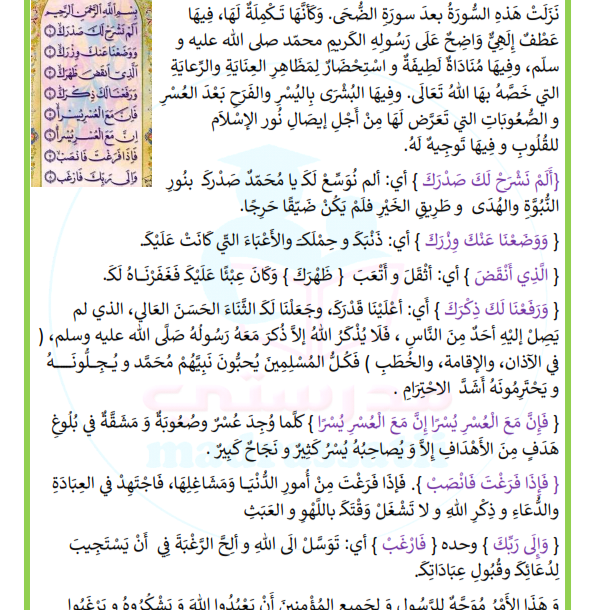 بسم الله الرحمن الرحيم
ألم نشرح لك صدرك
ووضعنا عنك وزرك
الذي أنقض ظهرك
ورفعنا لك ذكرك
فإن مع العسر يسرا
إن مع العسر يسرا
فإذا فرغت فانصب
وإلى ربك فارغب
نَزَلَتْ هَذهِ السُّورَةُ بعدَ سورَةِ الضُّحَى. وَكَأنَّهَا تَكْمِلَةٌ لَهَا، فِيهَا
عَطْفٌ إلَهِيٌّ وَاضِحٌ عَلَى رَسُولِهِ الكَريمِ محمّد صلى الله عليه و
سلّم، وفِيهَا مُنَادَاةٌ لَطِيفَةٌ و اسْتِحْضَارٌ لِمَظَاهِرِ العِنَايَةِ والرِّعايَةِ
التي خَصَّهُ بهَا اللهُ تَعَالَى. وفِيهَا البُشْرَى بِاليُسْرِ والفَرَحِ بَعْدَ العُسْرِ
و الصُّعُوبَاتِ التي تَعَرَّضَ لَهَا مِنْ أَجْلِ إيصَالِ نُورِ الإسْلَامِ
للقُلُوبِ و فِيهَا تَوجِيهٌ لَهُ.
{أَلَمْ نَشْرَحْ لَكَ صَدْرَكَ } أي: ألم نُوَسِّعْ لَكَ يا مُحَمّدٌ صَدْركَ بنُورِ
النُّبُوَّةِ والهُدَى و طَرِيقِ الخَيْرِ فلَمْ يَكُنْ ضَيّقًا حَرِجًا.
{ وَوَضَعْنَا عَنْكَ وِزْرَكَ } أي: ذَنْبَكَ و حِمْلَكَ والأعْبَاءَ التّي كَانَتْ عَلَيْكَ.
{ الَّذِي أَنْقَضَ } أي: أثْقَلَ و أتْعَبَ { ظَهْرَكَ } وَكَانَ عِبْئًا عَلَيْكَ فَغَفَرْنَـاهُ لَكَ.
{ وَرَفَعْنَا لَكَ ذِكْرَكَ } أَي: أعْلَيْنَا قَدْرَكَ، وجَعَلْنَا لَكَ الثَّنَاءَ الحَسَنَ العَالي، الذي لم
يَصِلْ إليْهِ أحَدٌ مِنَ النَّاسِ ، فَلَا يُذْكَرُ اللهُ إلاَّ ذُكرَ مَعَهُ رَسُولُهُ صَلَّى الله عليه وسلم، (
في الآذان، والإقامة، والخُطَبِ ) فَكُلُّ المُسْلِمِينَ يُحبُّونَ نَبِيَّهُمْ مُحَمَّد و يُـجِـلُّونَـــهُ
و يَحْتَرِمُونَهُ أَشَدَّ الاحْتِرَامِ .
{ فَإِنَّ مَعَ الْعُسْرِ يُسْرًا إِنَّ مَعَ الْعُسْرِ يُسْرًا } كَلَّما وُجِدَ عُسْرٌ وصُعُوبَةٌ و مَشَقَّةٌ في بُلُوغِ
هَدَفٍ مِنَ الأَهْدَافِ إِلاَّ وَ يُصَاحِبُهُ يُسْرُ كَثِيرٌ و نَجَاحٌ كَبِيرٌ .
{ فَإِذَا فَرَغْتَ فَانْصَبْ }. فإذَا فَرَغْتَ مِنْ أُمورِ الدُّنْيَـا وَمَشَاغِلِهَا، فَاجْتَهِدْ في العِبَادَةِ
والدُّعَاءِ و ذِكْرِ اللهِ و لا تَشْغَلْ وَقْتَكَ باللَّهْوِ و العَبَثِ
{ وَإِلَى رَبِّكَ } وحده { فَارْغَبْ } أي: تَوَسَّلْ الَى اللهِ و أَلِحَّ الرَّغْبَةَ فِي أَنْ يَسْتَجِيبَ
لِدُعَائِكَ وقُبُولِ عِبَادَاتِكَ.
و هَذَا الأَمْرُ مُوَجَّهٌ للرَّسُولِ و لجَميعِ المُؤْمِنينَ أَنْ يَعْبُدُوا اللهَ و يَشْكُرُوهُ و يَرْغَبُوا
مدرستي